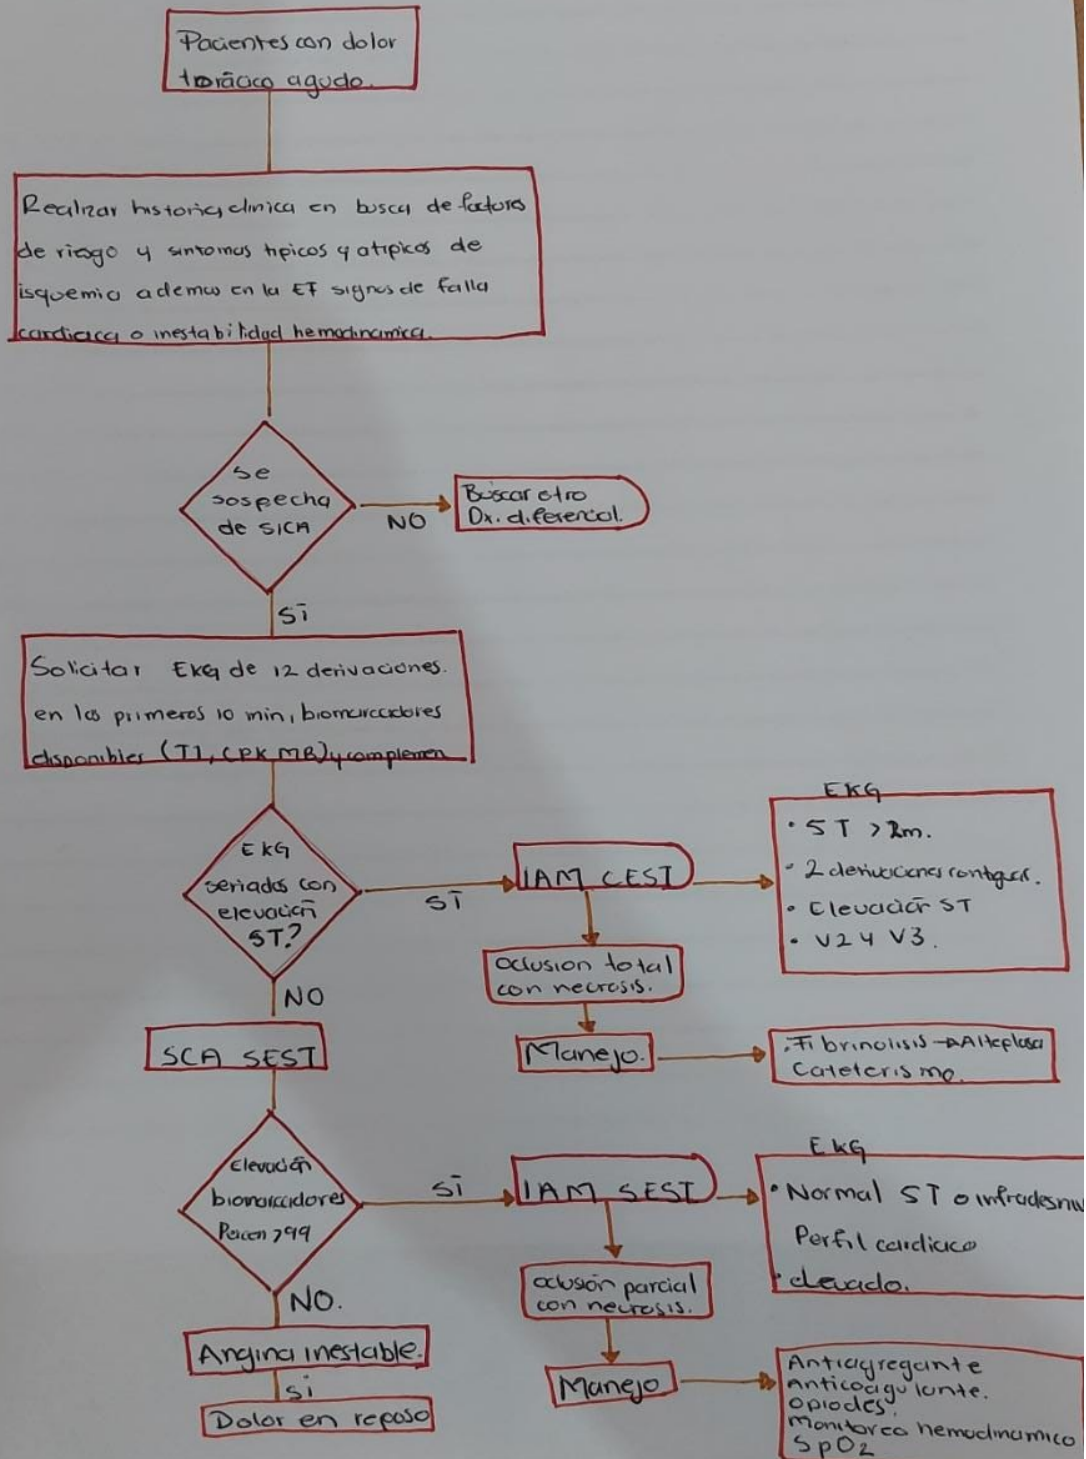 Pacientes con dolor
torácico agudo.
Realizar historia clinica en busca de factores
de riesgo y sintomas tipicos y atipicos de
isquemia ademas en la EF signos de falla
cardiaca o inestabilidad hemodinamica.
Se
sospecha
de SICA
NO
Buscar otro
Dx. diferencial.
SI
Solicitar EKG de 12 derivaciones.
en los primeros 10 min, biomarcadores
disponibles (TI, CPK MB) y complemen
EKG
seriados con
elevación
ST?
SI
IAM CEST
EKG
• ST > 2m.
• 2 derivaciones contiguas.
• Elevación ST
• V2 y V3.
Oclusion total
con necrosis.
Manejo.
. Fibrinolisis → Alteplasa
Cateterismo.
NO
SCA SEST
Elevación
biomarcadores
Percen >99
SI
IAM SEST
EKG
• Normal ST o infradesniv
Perfil cardiaco
• elevado.
oclusión parcial
con necrosis.
Manejo
Antiagregante
Anticoagulante.
Opiodes.
Monitoreo hemodinamico
SpO2
NO.
Angina inestable.
SI
Dolor en reposo